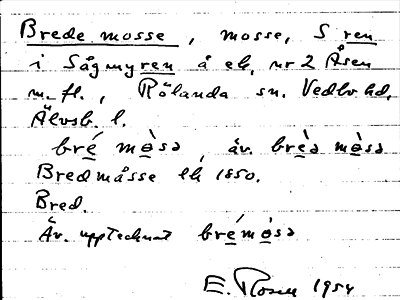 Brede mosse, mosse, S ren
i Sågmyren å ek. nr 2 Åsen
m. fl., Rölanda sn. Vedbo hd.
Älvsb. l.
bré mo̲sə, äv. brèə mo̲sə
Bredmåsse Ek 1850.
Bred.
Äv. upptecknat brémòsə
E. Rosell 1954